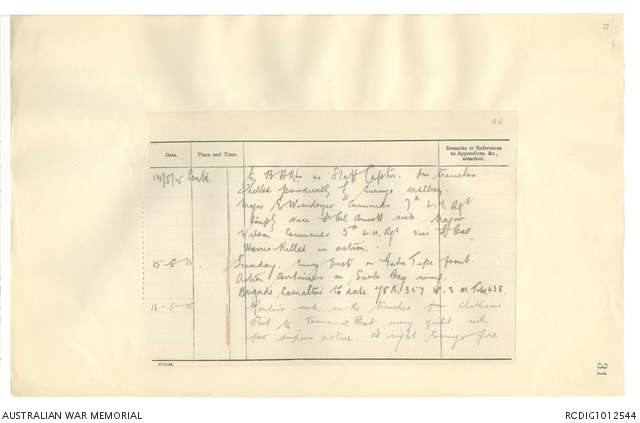 44
Date.
Place and Time.
Remarks or References
to Appendices, &c.,
attached.
to B. Hqrs as Staff Captn. Our trenches
shelled periodically by enemys artillery.
Major Commands 7th L.H. Rgt
vice Lt Col Arnott sick. Major
Wilson Commands 5th L.H. Rgt vice Lt Col
Harris killed in action.
15-8-15 Sunday Enemy quiet on Gaba Tepe front.
Action continues on Suvla Bay wing.
Brigade Casualties to date 78 K. 357 W. 3 M.
16-8-15 Routine work in the trenches from Chathams
Post to Tasmania Post enemy quiet
nature. At night Enemys fire
31
AUSTRALIAN WAR MEMORIAL
RCDIG1012544